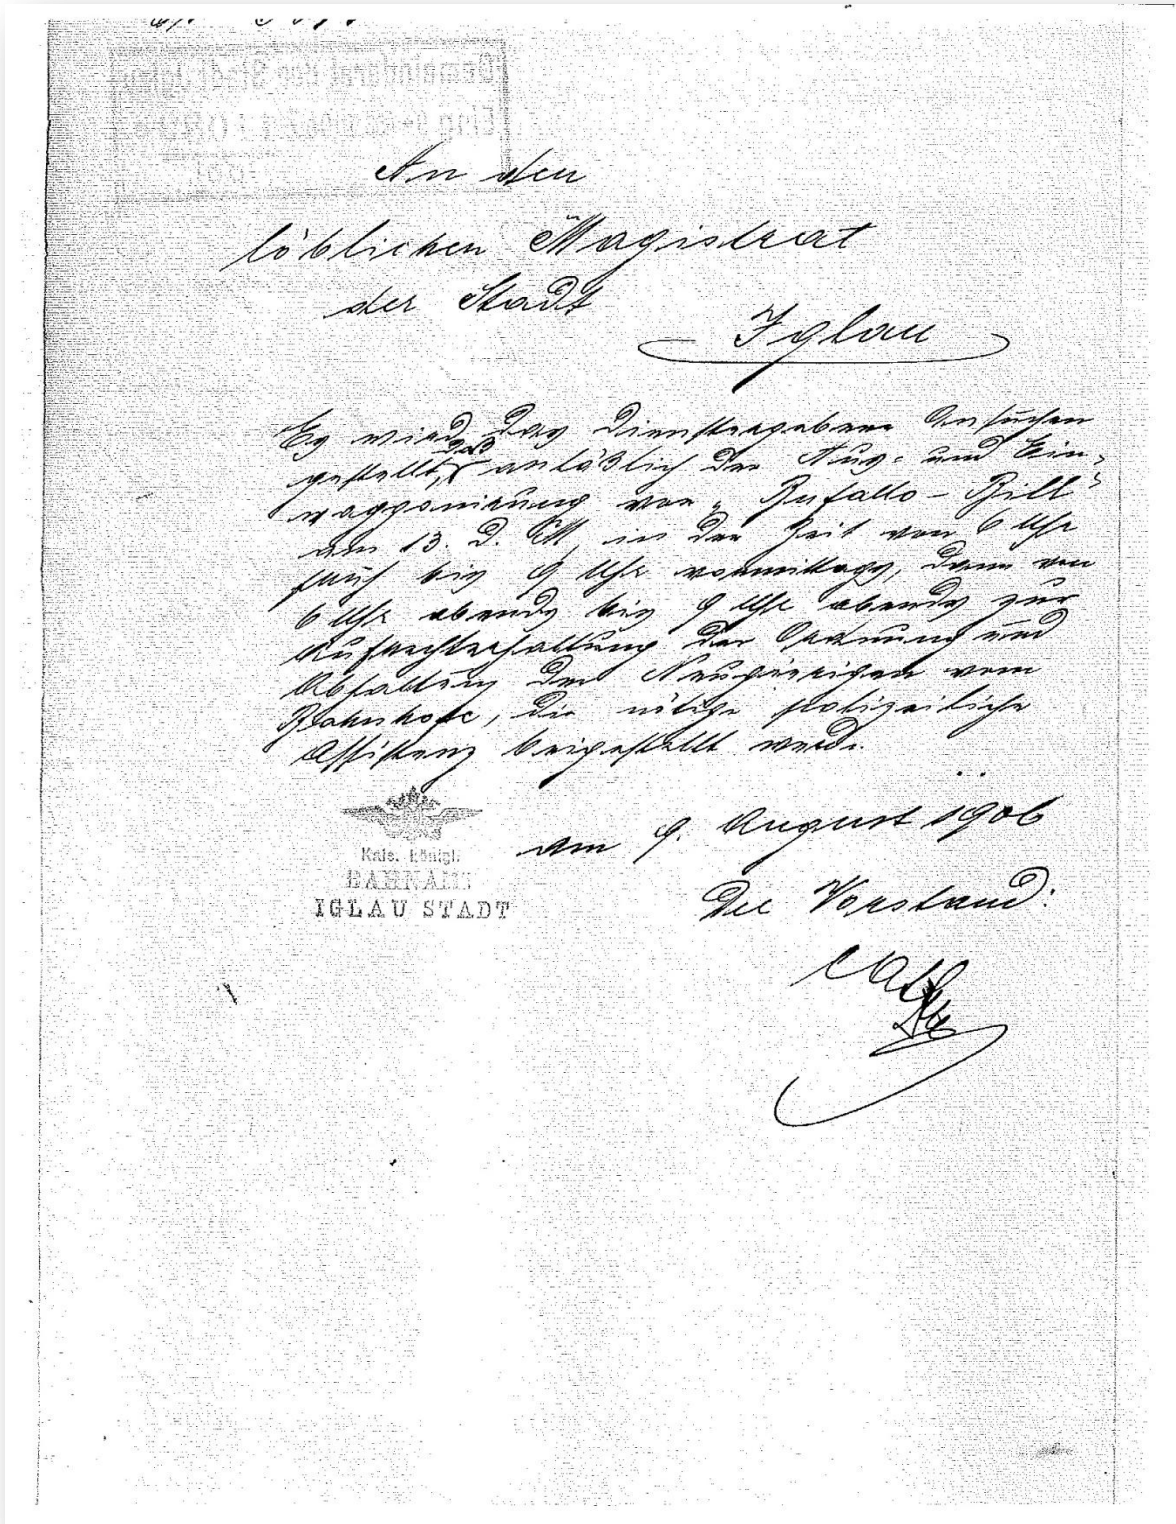 An den
löblichen Magistrat
der Stadt
Iglau
Es wird das dienstergebene Ansuchen
daß
gestellt, anläßlich der Aus- und Ein-
waggonirung von „Bufallo-Bill“
am 13. d. M. in der Zeit von 6 Uhr
früh bis 9 Uhr vormittags, dann von
6 Uhr abends bis 9 Uhr abends zur
Aufrechterhaltung der Ordnung und
Abhaltung der Neugierigen vom
Bahnhofe, die nötige polizeiliche
Assistenz beigestellt werde.
am 9. August 1906
Kais. königl.
BAHNAMT
IGLAU STADT
Der Vorstand: